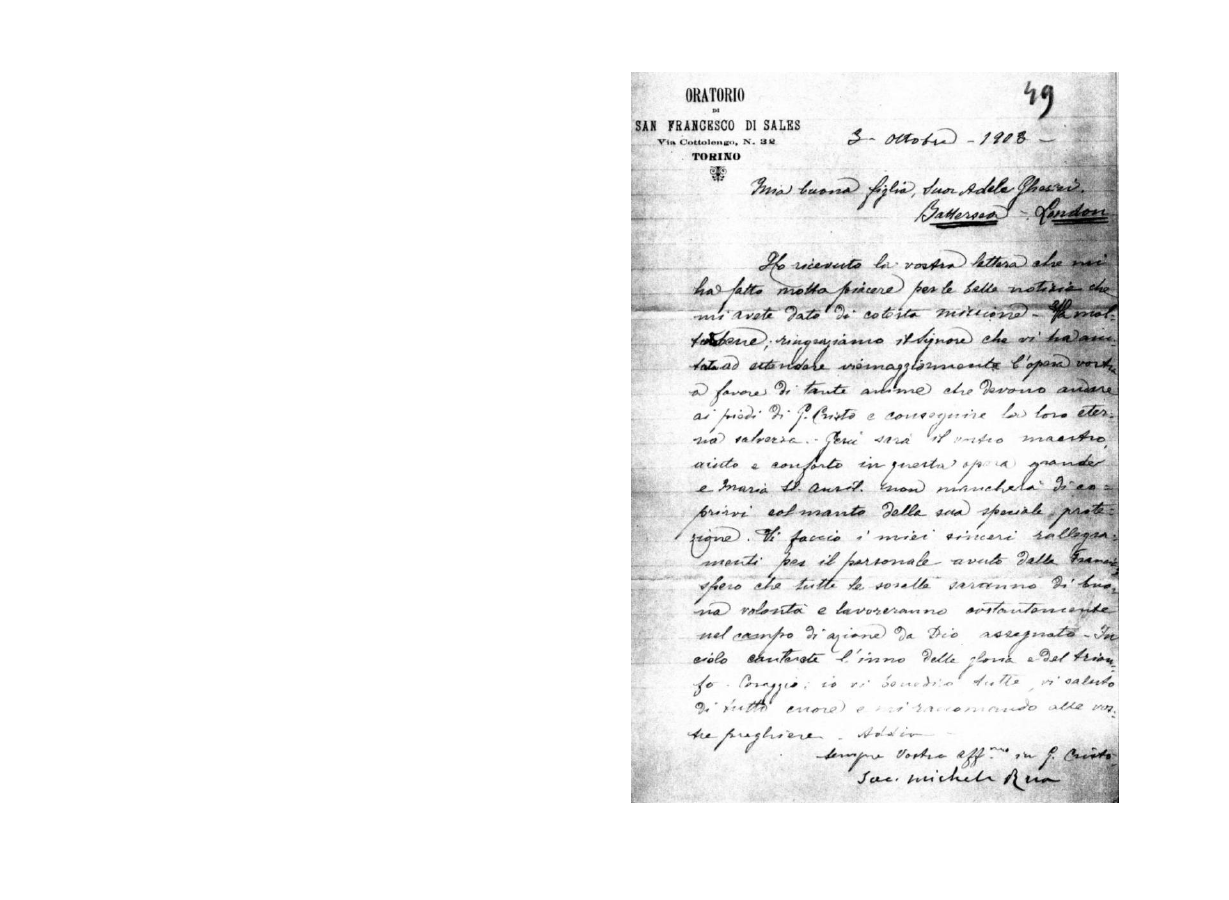 49
ORATORIO
DI
SAN FRANCESCO DI SALES
Via Cottolengo, N. 32
TORINO
3 - Ottobre - 1908 -
Mia buona figlia, Suor Adele
Battersea - London
Ho ricevuto la vostra lettera che mi
ha fatto molto piacere per le belle notizie che
mi avete dato di cotesta missione - Va mol-
to bene; ringraziamo il Signore che vi ha aiu-
tate ad estendere viemaggiormente l'opera vostra
a favore di tante anime che devono andare
ai piedi di G. Cristo e conseguire la loro eter-
na salvezza. Gesù sarà il vostro maestro,
aiuto e conforto in questa opera grande
e Maria SS. Ausil. non mancherà di co-
prirvi col manto della sua speciale prote-
zione. Vi faccio i miei sinceri rallegra-
menti per il personale avuto dalla Francia,
spero che tutte le sorelle saranno di buo-
na volontà e lavoreranno costantemente
nel campo di azione da Dio assegnato - In
cielo canterete l'inno della gloria e del trion-
fo - Coraggio; io vi benedico tutte, vi saluto
di tutto cuore e mi raccomando alle vos-
tre preghiere - Addio -
Sempre Vostro aff.mo in G. Cristo
Sac. Michele Rua